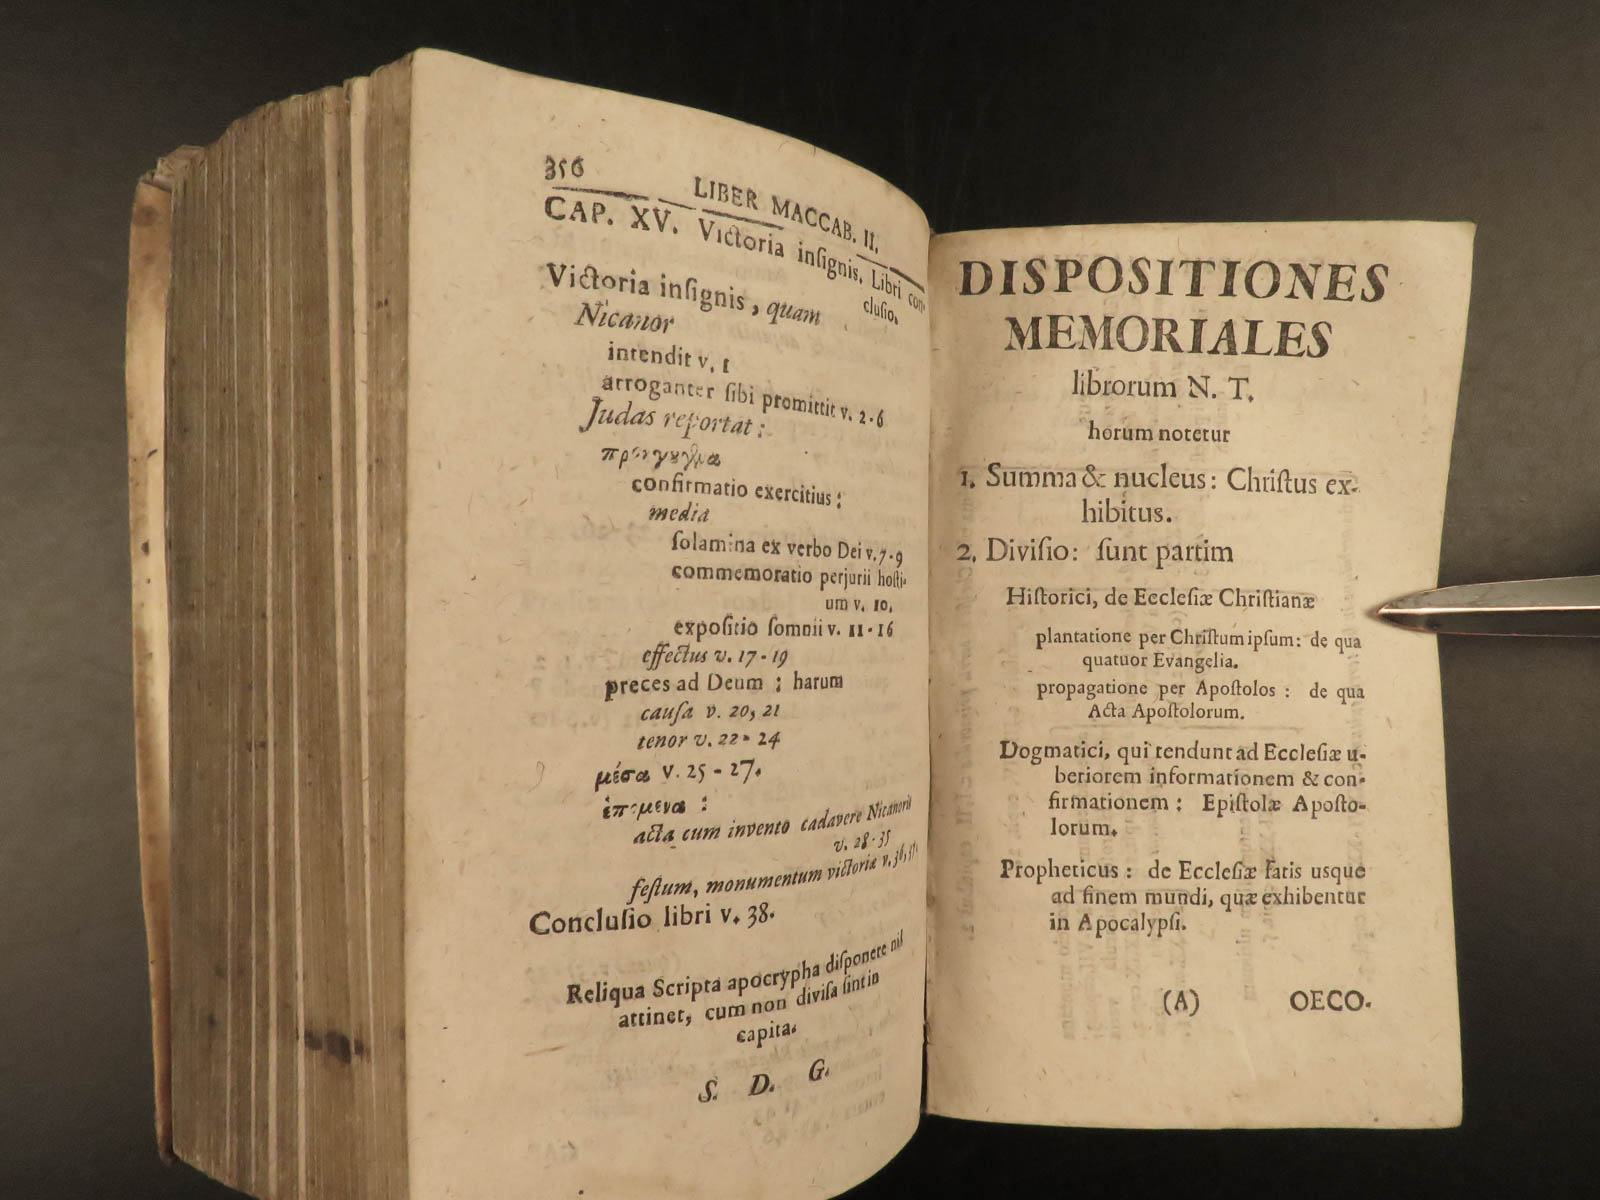 356
LIBER MACCAB. II.
CAP. XV. Victoria insignis. Libri con-
clusio.
Victoria insignis, quam
Nicanor
intendit v. 1
arroganter sibi promittit v. 2-6
Judas reportat:
confirmatio exercitius:
media
solamina ex verbo Dei v. 7-9
commemoratio perjurii hosti-
um v. 10.
expositio somnii v. 11-16
effectus v. 17-19
preces ad Deum: harum
causa v. 20, 21
tenor v. 22-24
μέσα v. 25-27.
ἑπόμενα:
acta cum invento cadavere Nicanoris
v. 28-35
festum, monumentum victoriæ v. 36, 37.
Conclusio libri v. 38.
Reliqua Scripta apocrypha disponere nil
attinet, cum non divisa sint in
capita.
S. D. G.
DISPOSITIONES
MEMORIALES
librorum N. T.
horum notetur
1. Summa & nucleus: Christus ex-
hibitus.
2. Divisio: sunt partim
Historici, de Ecclesiæ Christianæ
plantatione per Christum ipsum: de qua
quatuor Evangelia.
propagatione per Apostolos: de qua
Acta Apostolorum.
Dogmatici, qui tendunt ad Ecclesiæ u-
beriorem informationem & con-
firmationem: Epistolæ Aposto-
lorum.
Propheticus: de Ecclesiæ fatis usque
ad finem mundi, quæ exhibentur
in Apocalypsi.
(A) OECO-